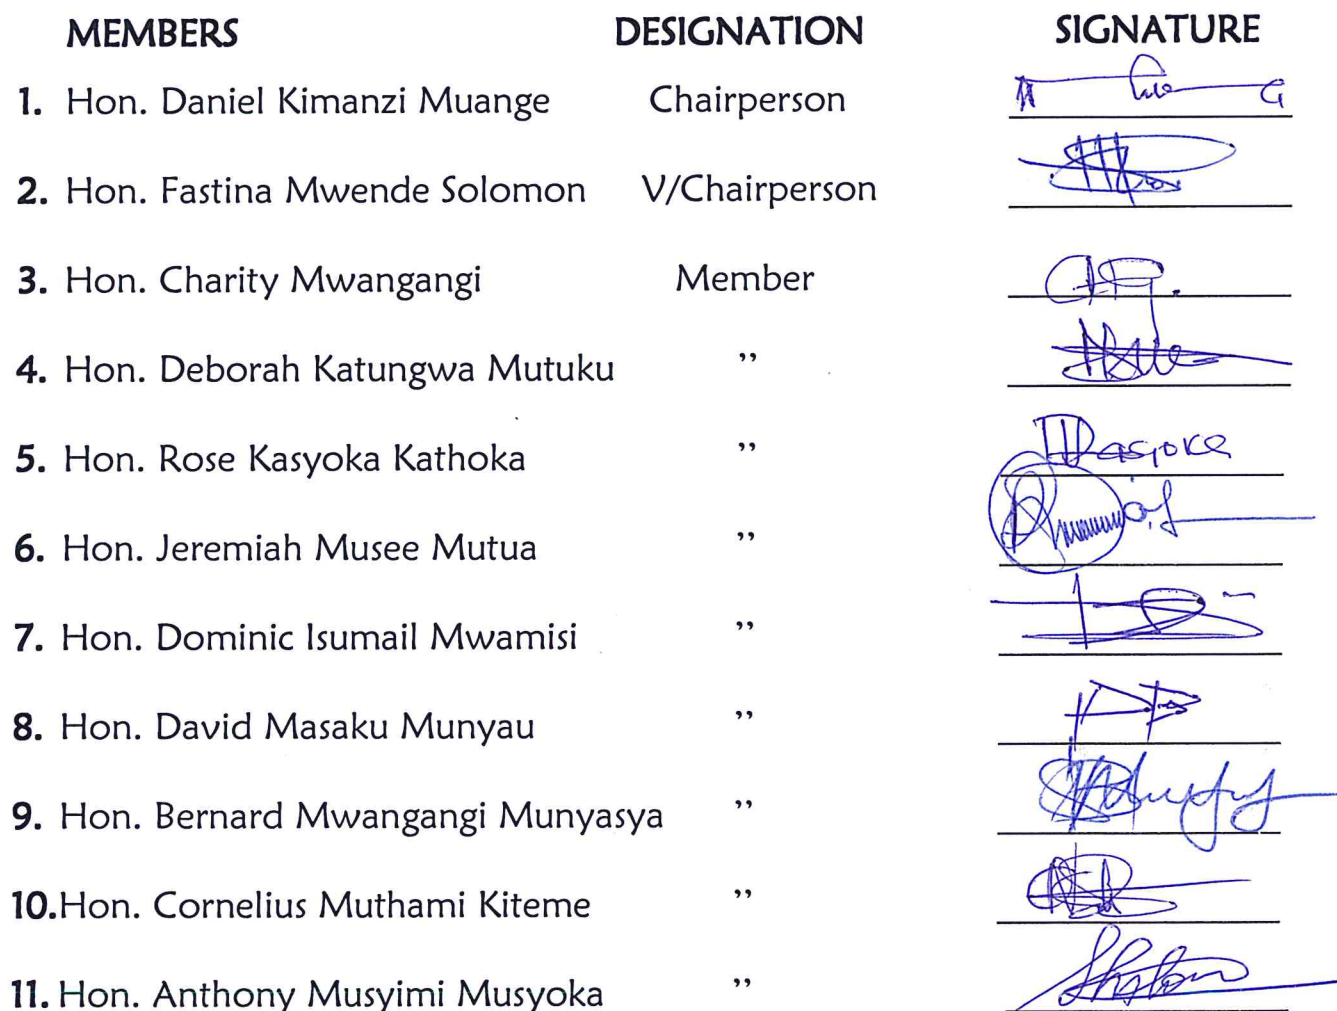 MEMBERS DESIGNATION SIGNATURE
1. Hon. Daniel Kimanzi Muange Chairperson
2. Hon. Fastina Mwende Solomon V/Chairperson
3. Hon. Charity Mwangangi Member
4. Hon. Deborah Katungwa Mutuku ”
5. Hon. Rose Kasyoka Kathoka ”
6. Hon. Jeremiah Musee Mutua ”
7. Hon. Dominic Isumail Mwamisi ”
8. Hon. David Masaku Munyau ”
9. Hon. Bernard Mwangangi Munyasya ”
10. Hon. Cornelius Muthami Kiteme ”
11. Hon. Anthony Musyimi Musyoka ”